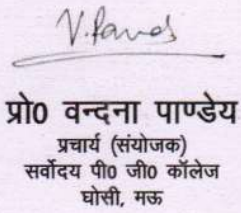 प्रो0 वन्दना पाण्डेय
प्राचार्य (संयोजक)
सर्वोदय पी0 जी0 कॉलेज
घोसी, मऊ